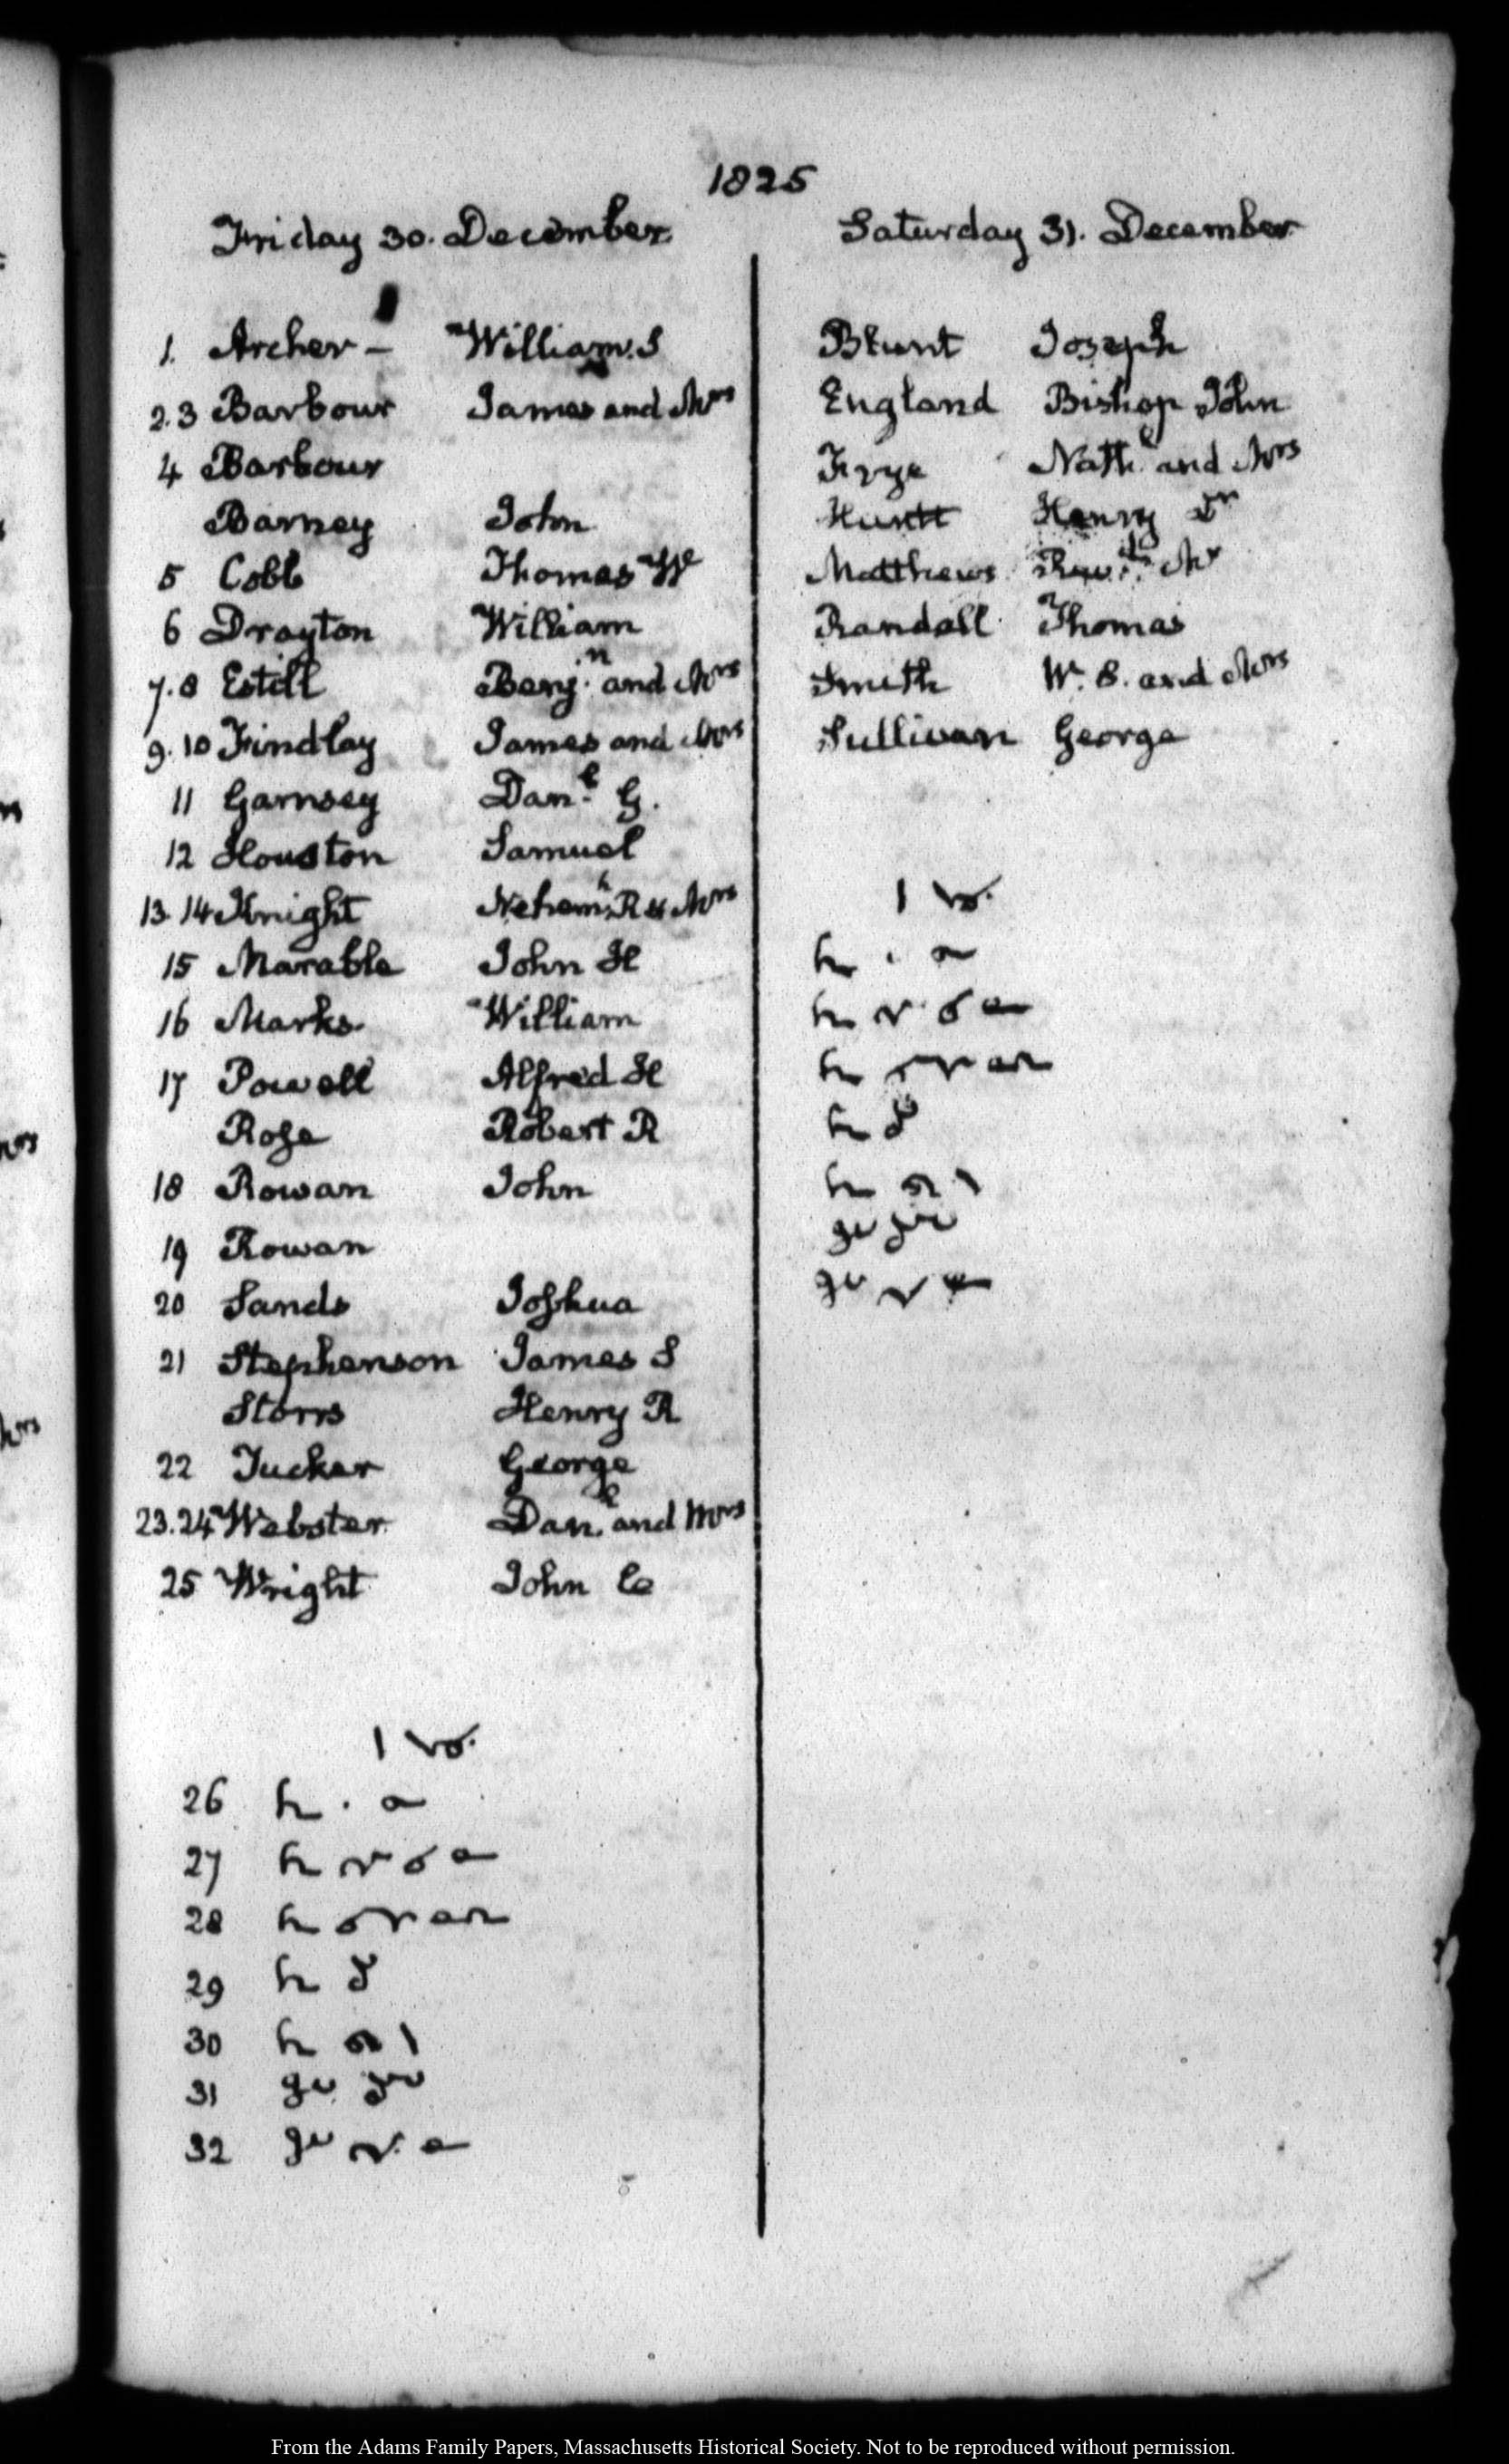 1825
Friday 30. December
1. Archer - William S
2.3 Barbour James and Mrs
4 Barbour
Barney John
5 Cobb Thomas W
6 Drayton William
7.8 Estill Benj.n and Mrs
9.10 Findlay James and Mrs
11 Garnsey Dan.l G.
12 Houston Samuel
13.14 Knight Nehem.h R & Mrs
15 Marable John H
16 Marks William
17 Powell Alfred H
Rose Robert R
18 Rowan John
19 Rowan
20 Sands Joshua
21 Stephenson James S
Storrs Henry R
22 Tucker George
23.24 Webster Dan.l and Mrs
25 Wright John C
26
27
28
29
30
31
32
Saturday 31. December
Blunt Joseph
England Bishop John
Frye Nath.l and Mrs
Huntt Henry Dr
Matthews Rev.d Mr
Randall Thomas
Smith W. B. and Mrs
Sullivan George
From the Adams Family Papers, Massachusetts Historical Society. Not to be reproduced without permission.